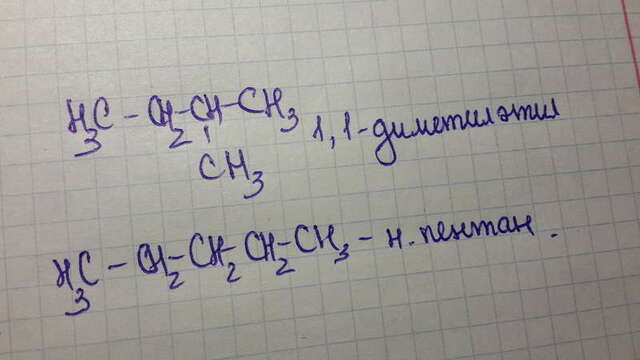 H₃C – CH₂ – CH – CH₃ 1,1-диметилэтил
CH₃
H₃C – CH₂ – CH₂ – CH₂ – CH₃ – н. пентан.